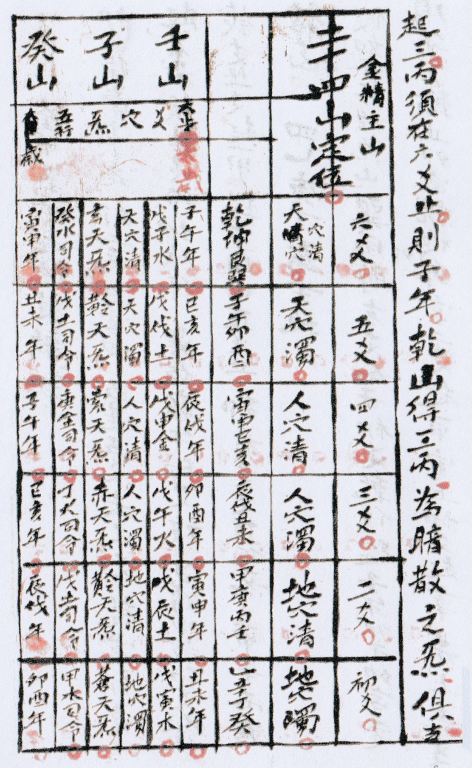 起三丙須在六爻止則子年乾山得三丙為暗散之炁俱主
金精主山
二十四山定位
六爻 五爻 四爻 三爻 二爻 初爻
天穴清 天穴濁 人穴清 人穴濁 地穴清 地穴濁
乾坤艮巽 子午卯酉 寅申巳亥 辰戌丑未 甲庚丙壬 乙辛丁癸
壬山 子山 癸山
爻 穴 炁 五行
歲
子午年 巳亥年 辰戌年 卯酉年 寅申年 丑未年
戊子水 戊戌土 戊申金 戊午火 戊辰土 戊寅木
天穴清 天穴濁 人穴清 人穴濁 地穴清 地穴濁
玄天炁 黅天炁 素天炁 赤天炁 黅天炁 蒼天炁
癸水司令 戊土司令 庚金司令 丁火司令 戊土司令 甲木司令
寅申年 丑未年 子午年 巳亥年 辰戌年 卯酉年